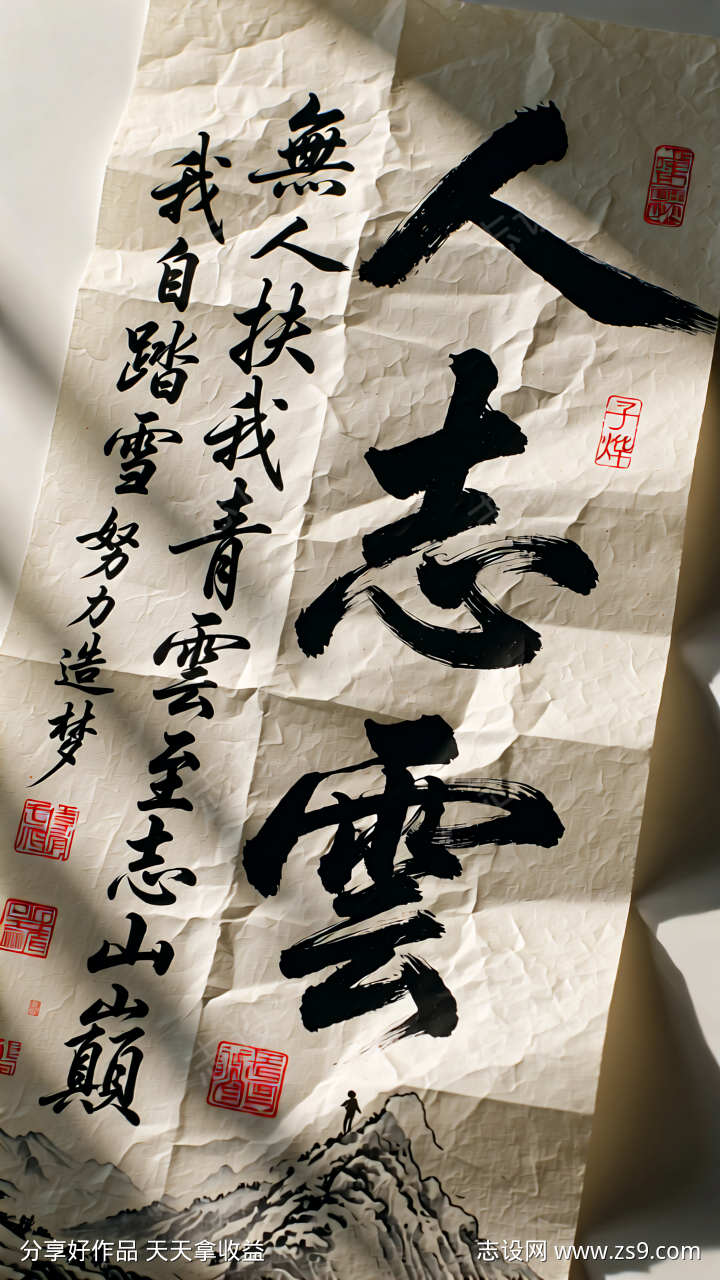 人志雲
子烨
無人扶我青雲至志山巔
我自踏雪
努力造梦
分享好作品 天天拿收益
志设网 www.zs9.com